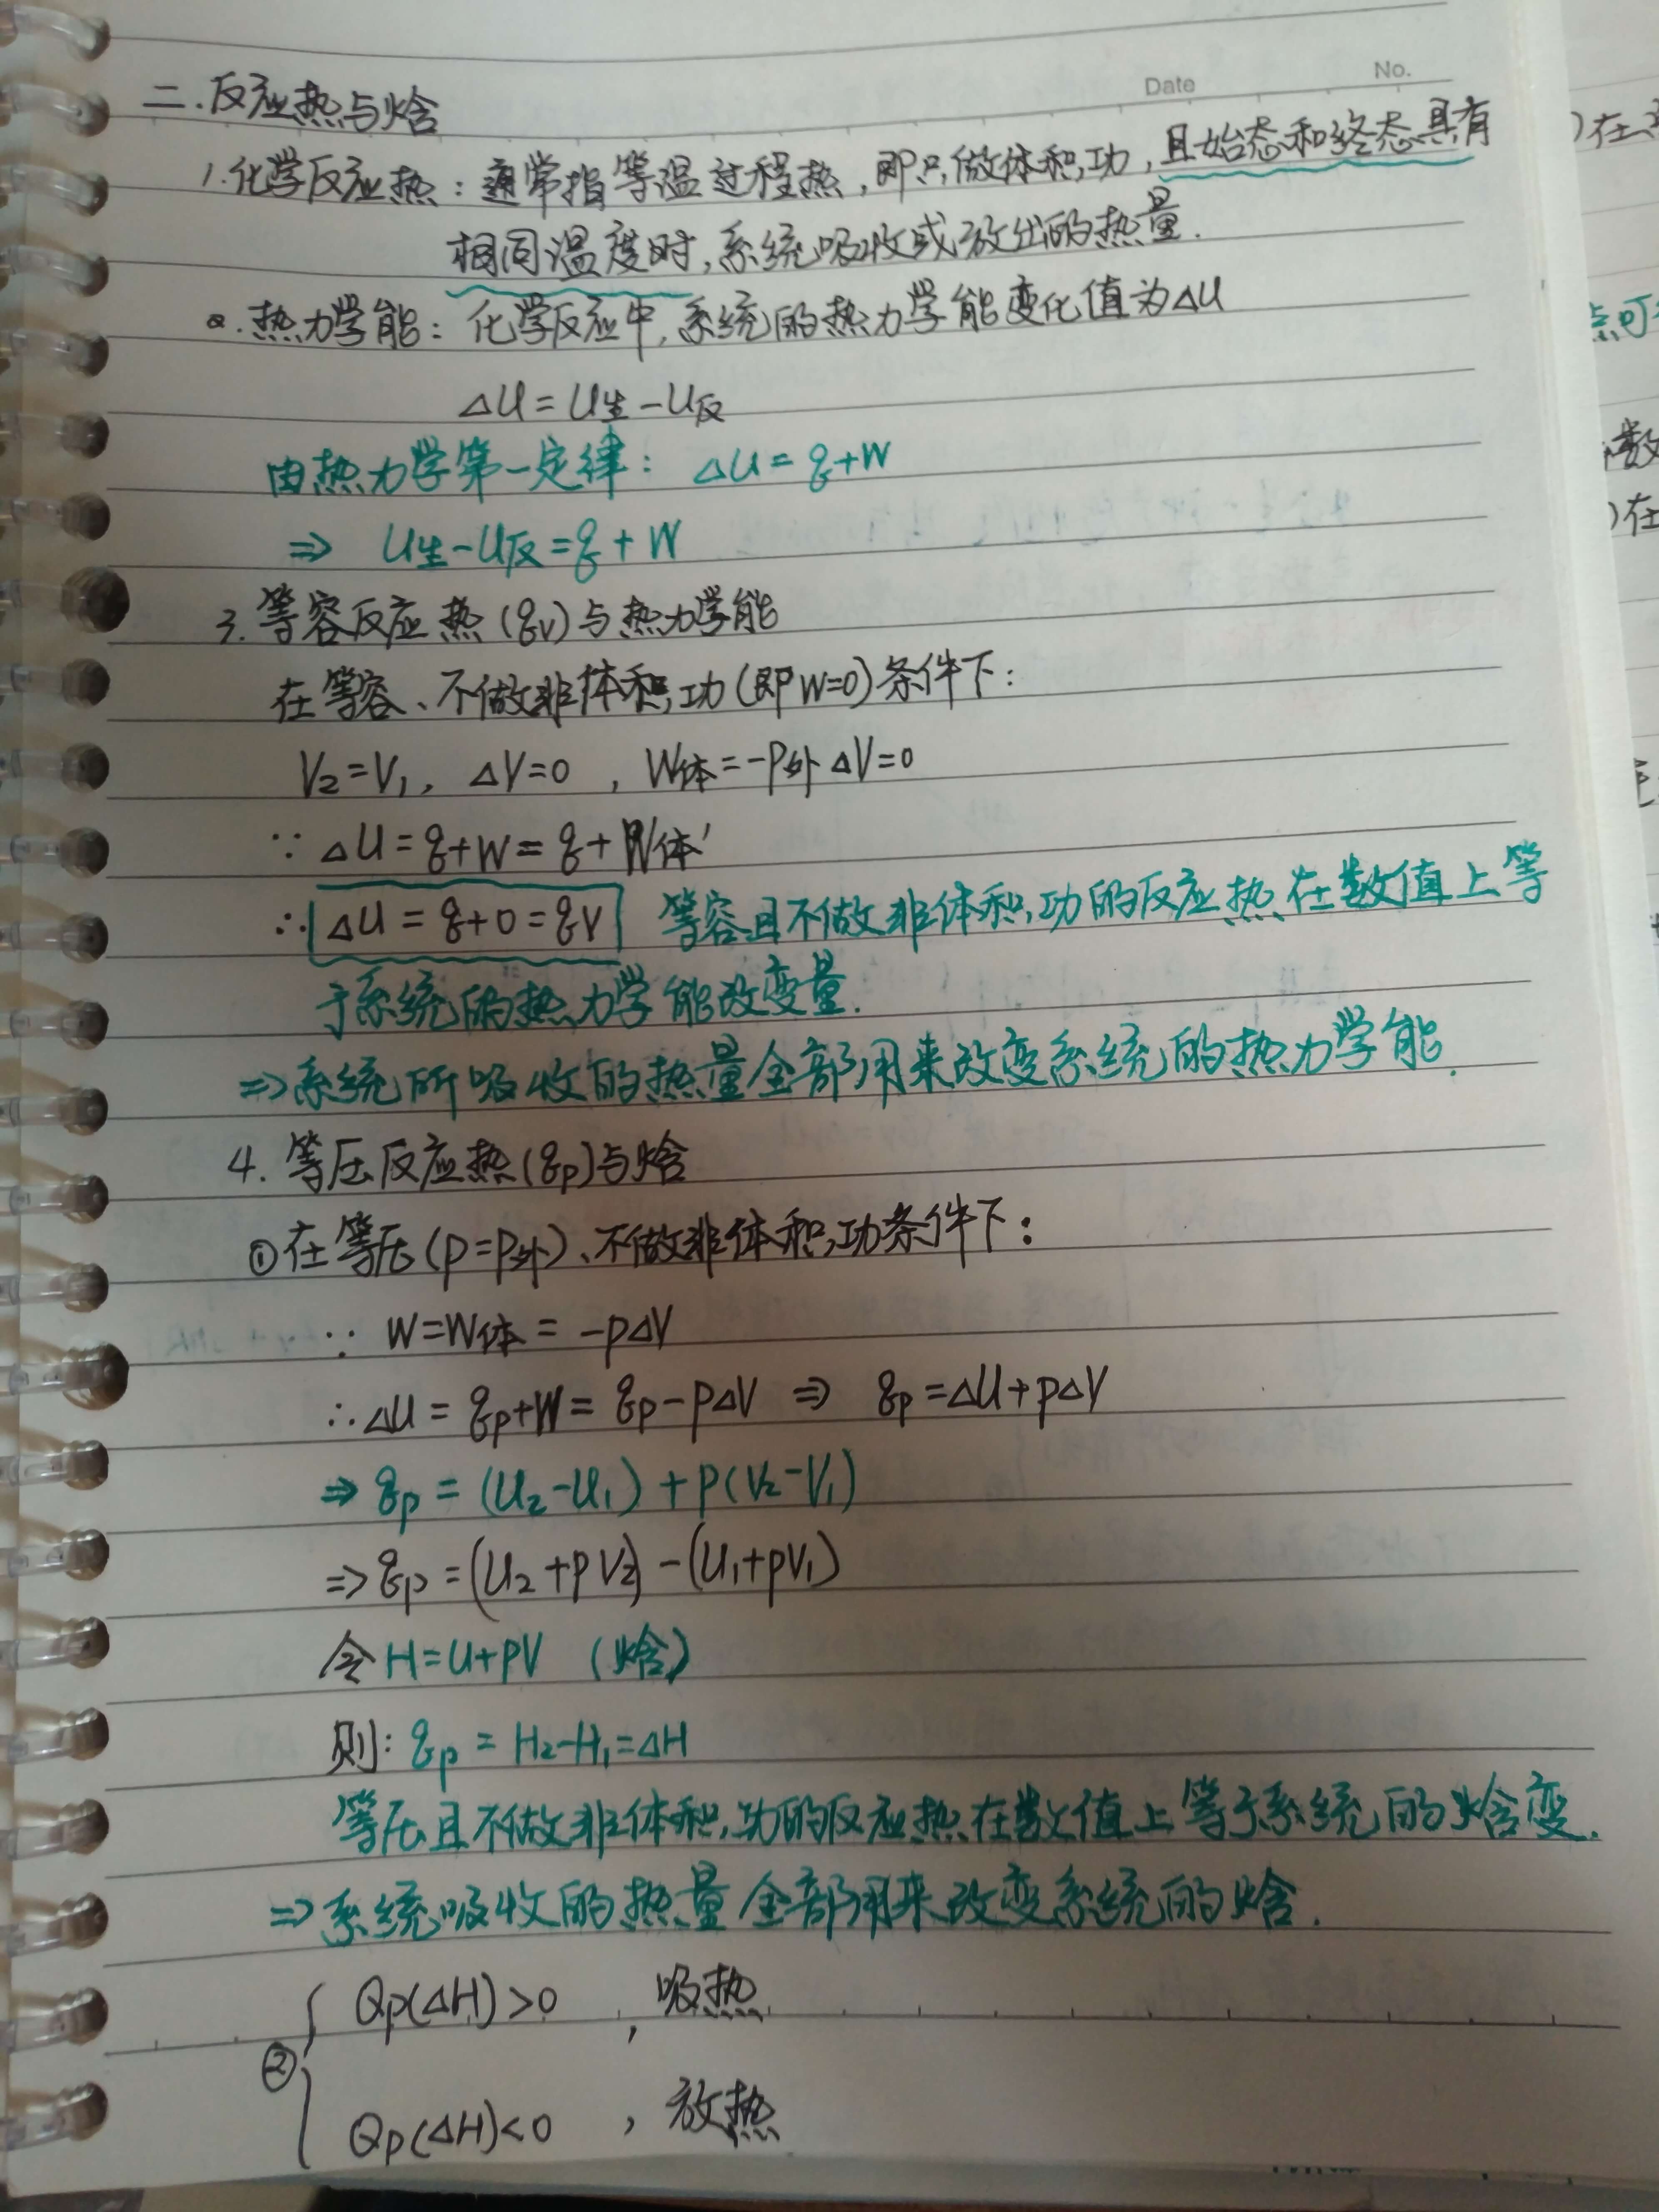 Date No.
二.反应热与焓
1.化学反应热：通常指等温过程热,即只做体积功,且始态和终态具有
相同温度时,系统吸收或放出的热量.
2.热力学能：化学反应中,系统的热力学能变化值为ΔU
ΔU=U生-U反
由热力学第一定律： ΔU=q+W
⇒ U生-U反=q+W
3.等容反应热(qv)与热力学能
在等容、不做非体积功(即W=0)条件下：
V₂=V₁, ΔV=0 , W体=-P外ΔV=0
∵ ΔU=q+W=q+W体
∴ ΔU=q+0=qv 等容且不做非体积功的反应热在数值上等
于系统的热力学能改变量.
⇒系统所吸收的热量全部用来改变系统的热力学能.
4.等压反应热(qp)与焓
①在等压(p=p外)、不做非体积功条件下：
∵ W=W体=-pΔV
∴ΔU=qp+W=qp-pΔV ⇒ qp=ΔU+pΔV
⇒ qp=(U₂-U₁)+p(V₂-V₁)
⇒qp=(U₂+pV₂)-(U₁+pV₁)
令H=U+pV (焓)
则：qp=H₂-H₁=ΔH
等压且不做非体积功的反应热在数值上等于系统的焓变.
⇒系统吸收的热量全部用来改变系统的焓.
② Qp(ΔH)>0 , 吸热
Qp(ΔH)<0 , 放热
)在
点可
数
)在